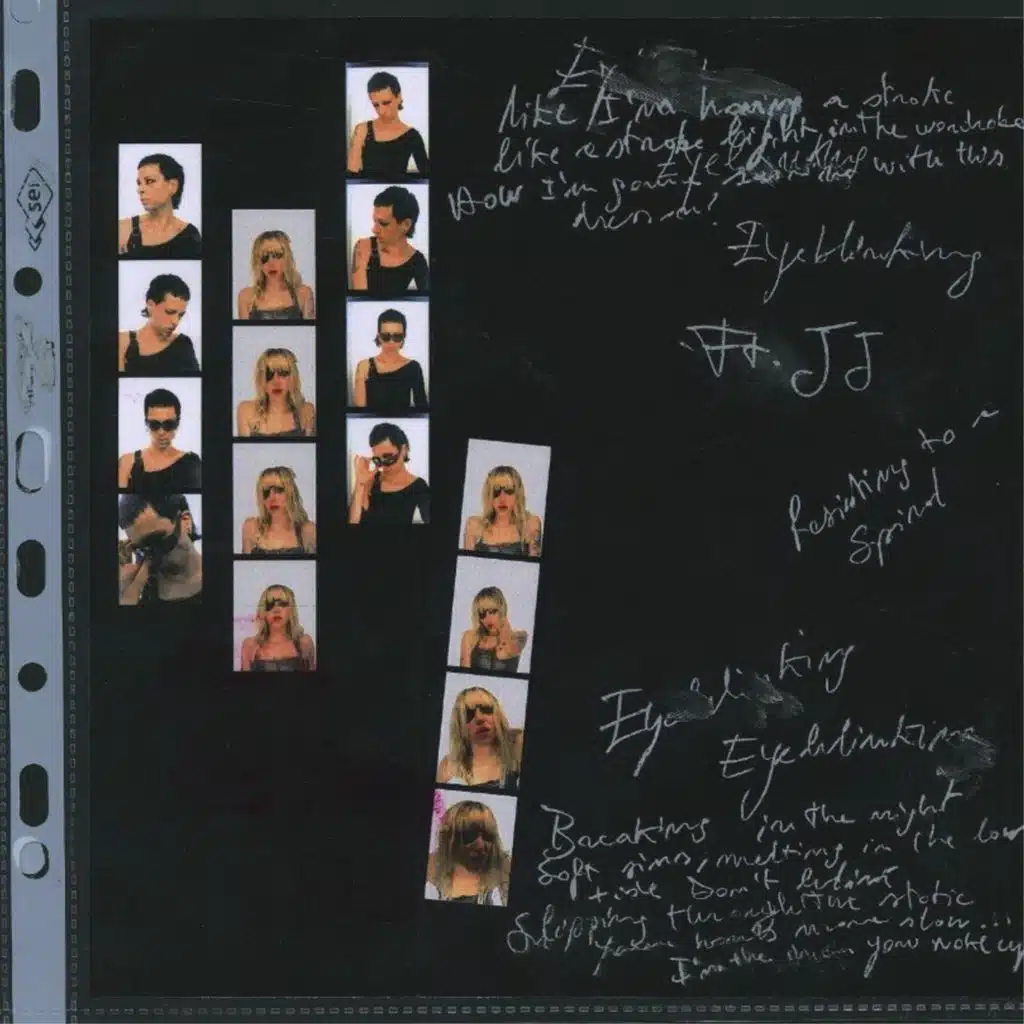 sei
like I'm having a stroke
like a strobe light in the wardrobe
Eyeblinking
How I'm with this
Eyeblinking
Ft. JJ
Resisting to a
Spiral
Eyeblinking
Eyeblinking
Breaking in the night
Soft sins, melting in the low
tide Don't
Slipping through the static
slow...
I'm the you woke up